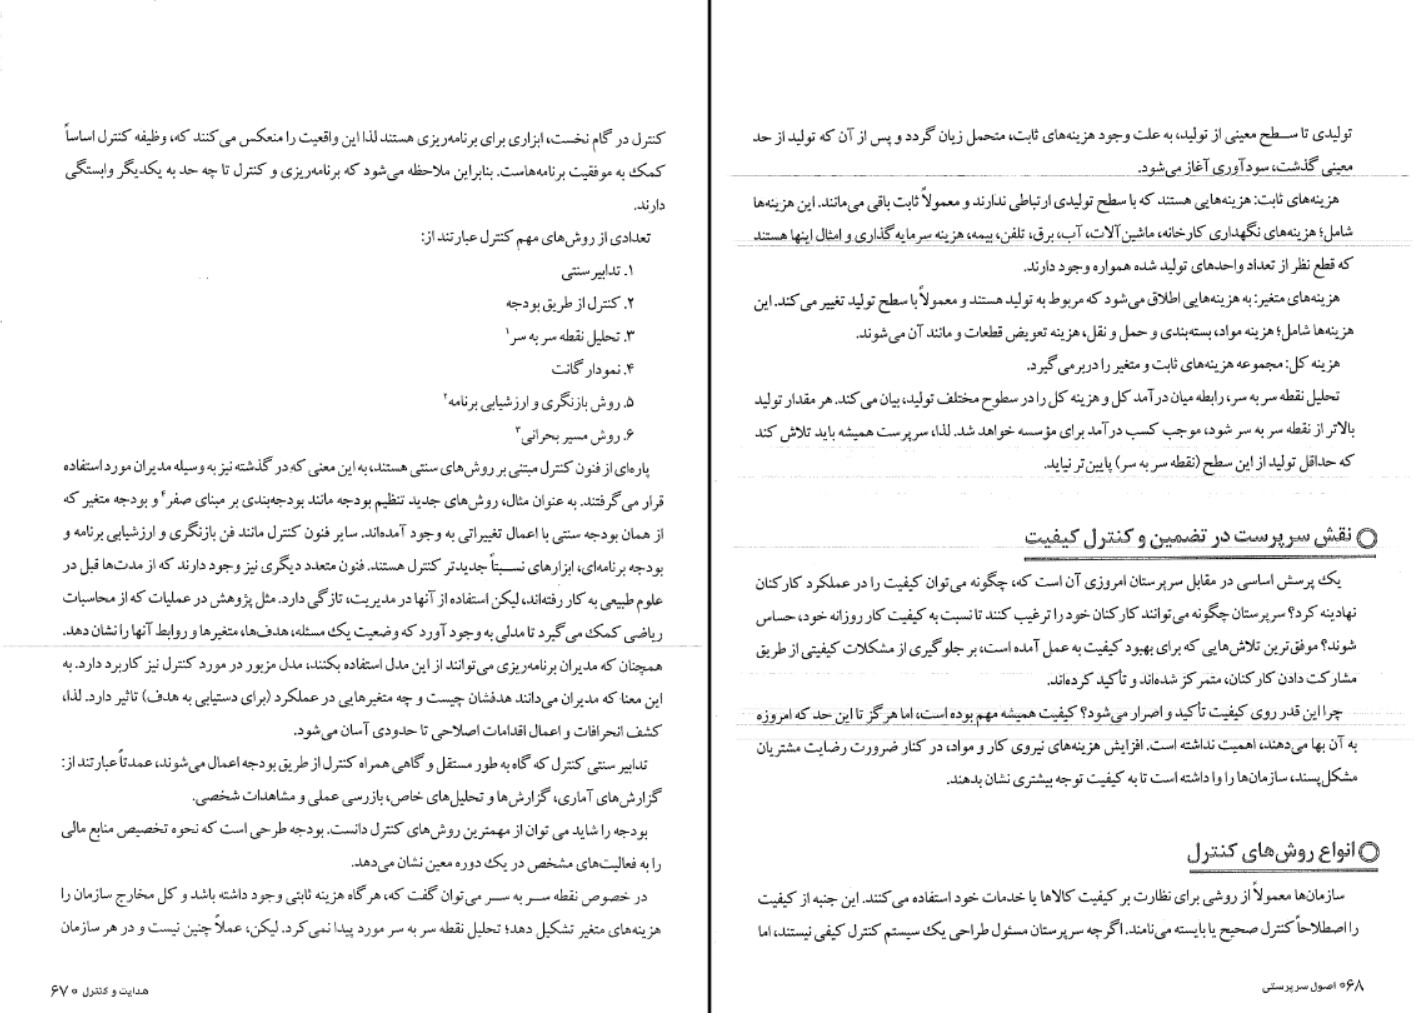 کنترل در گام نخست، ابزاری برای برنامه‌ریزی هستند لذا این واقعیت را منعکس می‌کنند که، وظیفه کنترل اساساً
کمک به موفقیت برنامه‌هاست. بنابراین ملاحظه می‌شود که برنامه‌ریزی و کنترل تا چه حد به یکدیگر وابستگی
دارند.
تعدادی از روش‌های مهم کنترل عبارتند از:
۱. تدابیر سنتی
۲. کنترل از طریق بودجه
۳. تحلیل نقطه سر به سر۱
۴. نمودار گانت
۵. روش بازنگری و ارزشیابی برنامه۲
۶. روش مسیر بحرانی۳
پاره‌ای از فنون کنترل مبتنی بر روش‌های سنتی هستند، به این معنی که در گذشته نیز به وسیله مدیران مورد استفاده
قرار می‌گرفتند. به عنوان مثال، روش‌های جدید تنظیم بودجه مانند بودجه‌بندی بر مبنای صفر۴ و بودجه متغیر که
از همان بودجه سنتی با اعمال تغییراتی به وجود آمده‌اند. سایر فنون کنترل مانند فن بازنگری و ارزشیابی برنامه و
بودجه برنامه‌ای، ابزارهای نسبتاً جدیدتر کنترل هستند. فنون متعدد دیگری نیز وجود دارند که از مدت‌ها قبل در
علوم طبیعی به کار رفته‌اند، لیکن استفاده از آنها در مدیریت، تازگی دارد. مثل پژوهش در عملیات که از محاسبات
ریاضی کمک می‌گیرد تا مدلی به وجود آورد که وضعیت یک مسئله، هدف‌ها، متغیرها و روابط آنها را نشان دهد.
همچنان که مدیران برنامه‌ریزی می‌توانند از این مدل استفاده بکنند، مدل مزبور در مورد کنترل نیز کاربرد دارد. به
این معنا که مدیران می‌دانند هدفشان چیست و چه متغیرهایی در عملکرد (برای دستیابی به هدف) تاثیر دارد. لذا،
کشف انحرافات و اعمال اقدامات اصلاحی تا حدودی آسان می‌شود.
تدابیر سنتی کنترل که گاه به طور مستقل و گاهی همراه کنترل از طریق بودجه اعمال می‌شوند، عمدتاً عبارتند از:
گزارش‌های آماری، گزارش‌ها و تحلیل‌های خاص، بازرسی عملی و مشاهدات شخصی.
بودجه را شاید می توان از مهمترین روش‌های کنترل دانست. بودجه طرحی است که نحوه تخصیص منابع مالی
را به فعالیت‌های مشخص در یک دوره معین نشان می‌دهد.
در خصوص نقطه سر به سر می‌توان گفت که، هرگاه هزینه ثابتی وجود داشته باشد و کل مخارج سازمان را
هزینه‌های متغیر تشکیل دهد؛ تحلیل نقطه سر به سر مورد پیدا نمی‌کرد. لیکن، عملاً چنین نیست و در هر سازمان
هدایت و کنترل ° ۶۷
تولیدی تا سطح معینی از تولید، به علت وجود هزینه‌های ثابت، متحمل زیان گردد و پس از آن که تولید از حد
معینی گذشت، سودآوری آغاز می‌شود.
هزینه‌های ثابت: هزینه‌هایی هستند که با سطح تولیدی ارتباطی ندارند و معمولاً ثابت باقی می‌مانند. این هزینه‌ها
شامل؛ هزینه‌های نگهداری کارخانه، ماشین‌آلات، آب، برق، تلفن، بیمه، هزینه سرمایه‌گذاری و امثال اینها هستند
که قطع نظر از تعداد واحدهای تولید شده همواره وجود دارند.
هزینه‌های متغیر: به هزینه‌هایی اطلاق می‌شود که مربوط به تولید هستند و معمولاً با سطح تولید تغییر می‌کند. این
هزینه‌ها شامل؛ هزینه مواد، بسته‌بندی و حمل و نقل، هزینه تعویض قطعات و مانند آن می‌شوند.
هزینه کل: مجموعه هزینه‌های ثابت و متغیر را دربرمی‌گیرد.
تحلیل نقطه سر به سر، رابطه میان درآمد کل و هزینه کل را در سطوح مختلف تولید، بیان می‌کند. هر مقدار تولید
بالاتر از نقطه سر به سر شود، موجب کسب درآمد برای مؤسسه خواهد شد. لذا، سرپرست همیشه باید تلاش کند
که حداقل تولید از این سطح (نقطه سر به سر) پایین‌تر نیاید.
نقش سرپرست در تضمین و کنترل کیفیت
یک پرسش اساسی در مقابل سرپرستان امروزی آن است که، چگونه می‌توان کیفیت را در عملکرد کارکنان
نهادینه کرد؟ سرپرستان چگونه می‌توانند کارکنان خود را ترغیب کنند تا نسبت به کیفیت کار روزانه خود، حساس
شوند؟ موفق‌ترین تلاش‌هایی که برای بهبود کیفیت به عمل آمده است، بر جلوگیری از مشکلات کیفیتی از طریق
مشارکت دادن کارکنان، متمرکز شده‌اند و تأکید کرده‌اند.
چرا این قدر روی کیفیت تأکید و اصرار می‌شود؟ کیفیت همیشه مهم بوده است، اما هرگز تا این حد که امروزه
به آن بها می‌دهند، اهمیت نداشته است. افزایش هزینه‌های نیروی کار و مواد، در کنار ضرورت رضایت مشتریان
مشکل‌پسند، سازمان‌ها را وا داشته است تا به کیفیت توجه بیشتری نشان بدهند.
انواع روش‌های کنترل
سازمان‌ها معمولاً از روشی برای نظارت بر کیفیت کالاها یا خدمات خود استفاده می‌کنند. این جنبه از کیفیت
را اصطلاحاً کنترل صحیح یا بایسته می‌نامند. اگرچه سرپرستان مسئول طراحی یک سیستم کنترل کیفی نیستند، اما
۶۸ ° اصول سرپرستی